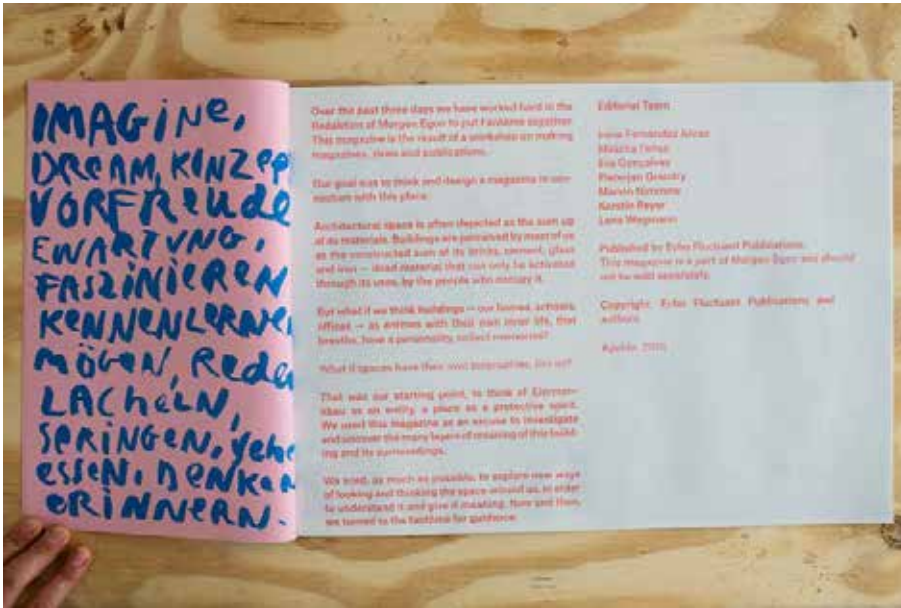 IMAGINE,
DREAM, KINZEP
VORFREUDE
EWARTUNG,
FASZINIEREN
KENNENLERNEN
MÖGEN, Reden
LACHELN,
SPRINGEN, gehe
essen, DENKEN
ERINNERN.
Over the past three days we have worked hard in the
Redaktion of Morgen Egon to put together
This magazine is the result of a workshop on making
magazines, and publications.
Our goal was to think and design a magazine in con-
nection with this place.
Architectural space is often depicted as the sum up
of its materials. Buildings are perceived by most of us
as the constructed sum of its bricks, cement, glass
and iron — dead material that can only be activated
through its uses, by the people who occupy it.
But what if we think buildings — our homes, schools,
offices — as entities with their own inner life, that
breathe, have a personality, collect memories?
What if spaces have their own
That was our starting point, to think of
as an entity, a place as a protective spirit.
We used this magazine as an excuse to investigate
and uncover the many layers of meaning of this build-
ing and its surroundings.
We tried, as much as possible, to explore new ways
of looking and thinking the space around us, in order
to understand it and give it meaning. Now and then,
we turned to the for guidance.
Editorial Team
Irene Fernández
Eva Gonçalves
Marvin
Kerstin Reyer
Lena Wegmann
Published by Echo Fluctuant Publications.
This magazine is a part of Morgen Egon and should
not be sold separately.
Copyright: Echo Fluctuant Publications and
authors.